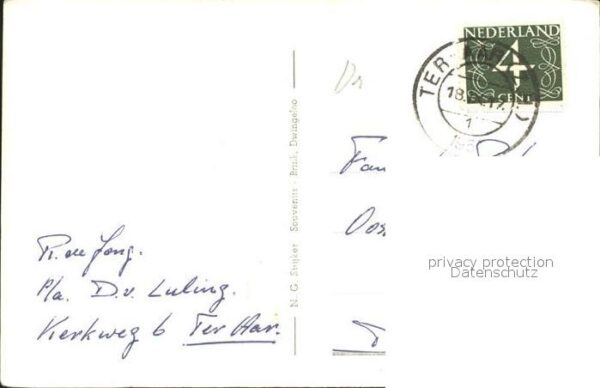 NEDERLAND
4
CENT
TER AAR
18.
17
1
Fam
Oos
privacy protection
Datenschutz
R. de Jong.
p/a. D.v. Luling.
Kerkweg 6 Ter Aar.
N. G. Snijker Souvenirs - Brink, Dwingeloo